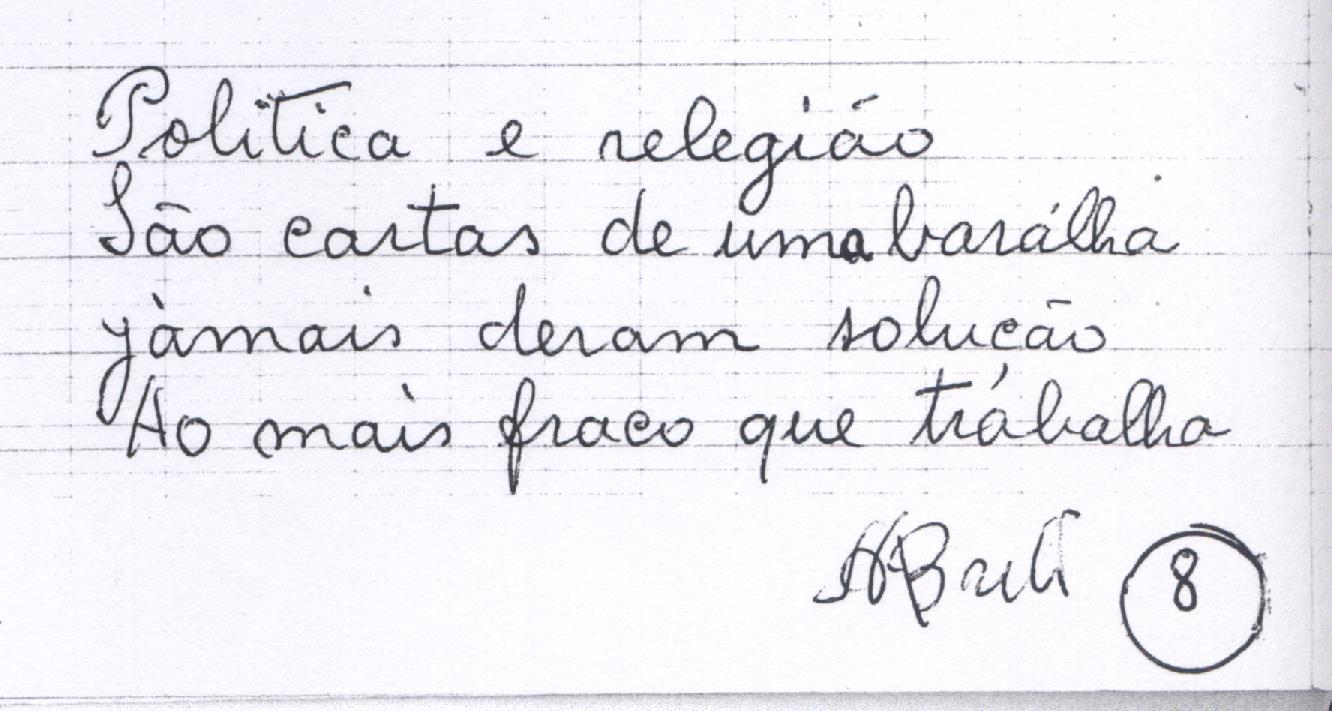 Politica e relegião
São cartas de uma barálha
jàmais deram solucão
Ao mais fraco que trábalha
8